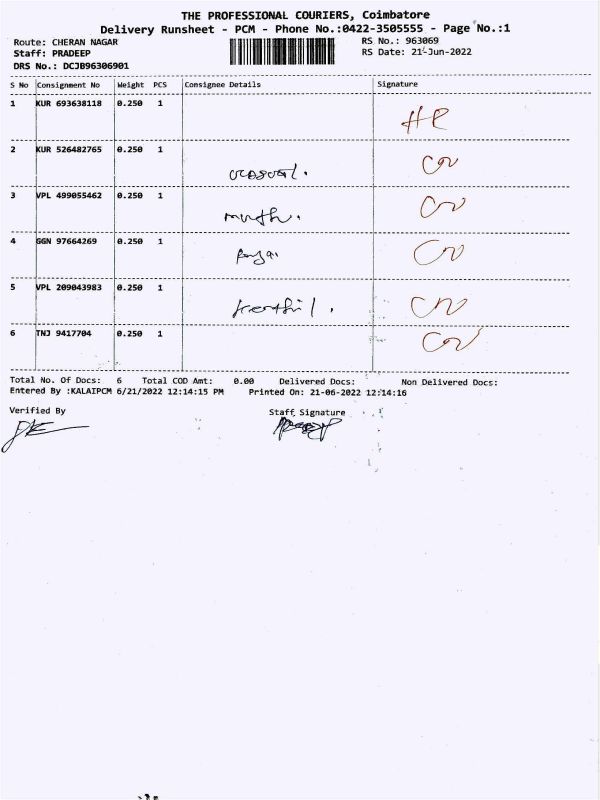 THE PROFESSIONAL COURIERS, Coimbatore
Delivery Runsheet - PCM - Phone No.:0422-3505555 - Page No.:1
Route: CHERAN NAGAR
RS No.: 963069
Staff: PRADEEP
RS Date: 21-Jun-2022
DRS No.: DCJB96306901
S No Consignment No Weight PCS Consignee Details Signature
1 KUR 693638118 0.250 1
2 KUR 526482765 0.250 1
3 VPL 499055462 0.250 1
4 GGN 97664269 0.250 1
5 VPL 209043983 0.250 1
6 TNJ 9417704 0.250 1
Total No. Of Docs: 6 Total COD Amt: 0.00 Delivered Docs: Non Delivered Docs:
Entered By :KALAIPCM 6/21/2022 12:14:15 PM Printed On: 21-06-2022 12:14:16
Verified By Staff Signature